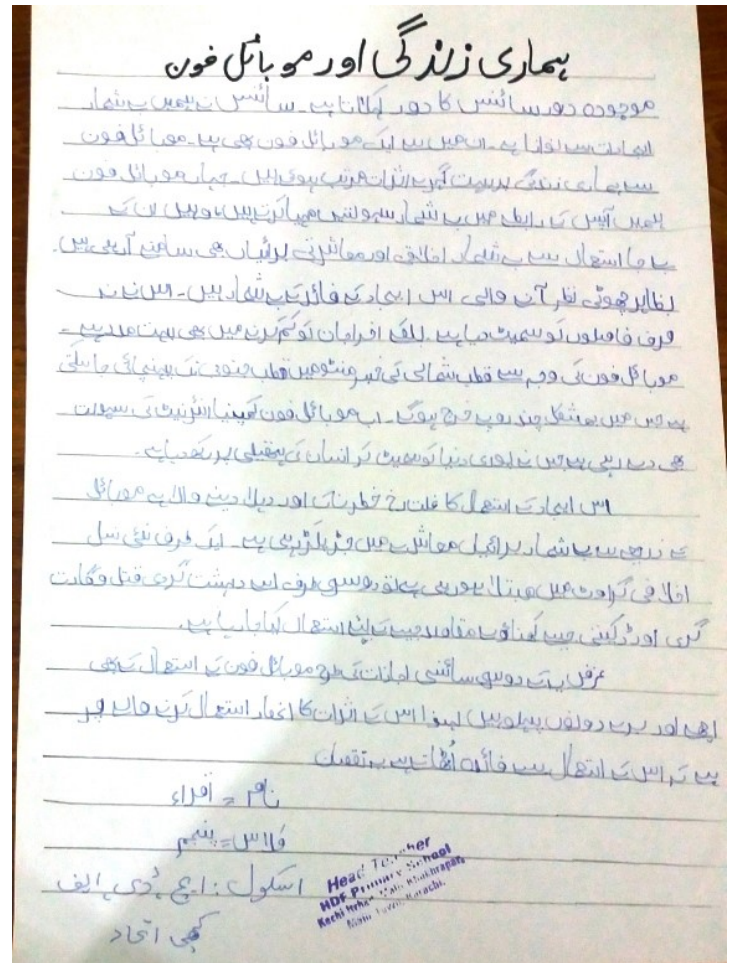 ہماری زندگی اور موبائل فون
موجودہ دور سائنس کا دور کہلاتا ہے۔ سائنس نے ہمیں بے شمار
ایجادات سے نوازا ہے۔ ان میں سے ایک موبائل فون بھی ہے۔ موبائل فون
سے ہماری زندگی پر بہت گہرے اثرات مرتب ہوئے ہیں۔ جہاں موبائل فون
ہمیں آپس کے رابطے میں بے شمار سہولتیں مہیا کرتے ہیں، وہیں ان کے
بے جا استعمال سے بے شمار اخلاقی اور معاشرتی برائیاں بھی سامنے آرہی ہیں۔
بظاہر چھوٹی نظر آنے والی اس ایجاد کے فائدے بے شمار ہیں۔ اس نے نہ
صرف فاصلوں کو سمیٹ دیا ہے بلکہ اخراجات کو کم کرنے میں بھی بہت مدد ہے۔
موبائل فون کی وجہ سے قطب شمالی کی خبر منٹوں میں قطب جنوبی تک پہنچائی جا سکتی
ہے جس میں بمشکل چند روپے خرچ ہونگے۔ اب موبائل فون کمپنیاں انٹرنیٹ کی سہولت
بھی دے رہی ہے جس نے پوری دنیا کو سمیٹ کر انسان کی ہتھیلی پر رکھ دیا ہے۔
اس ایجاد کے استعمال کا غلط رخ خطرناک اور دہلا دینے والا ہے موبائل
کے ذریعے سے بے شمار برائیاں معاشرے میں جڑ پکڑ رہی ہے۔ ایک طرف نئی نسل
اخلاقی گراوٹ میں مبتلا ہو رہی ہے تو دوسری طرف اسے دہشت گردی قتل و غارت
گری اور ڈکیتی جیسے گھناؤنے مقاصد کے لئے استعمال کیا جا رہا ہے۔
غرض یہ کہ دوسری سائنسی ایجادات کی طرح موبائل فون کے استعمال کے بھی
اچھے اور برے دونوں پہلو ہیں لہٰذا اس کے اثرات کا انحصار استعمال کرنے والے پر
ہے کہ اس کے استعمال سے فائدہ اُٹھاتا ہے یہ نقصان
نام = اقراء
کلاس = پنجم
اسکول : ایچ، ڈی، ایف
کچھی اتحاد
Head Teacher
HDF Primary School
Karachi.